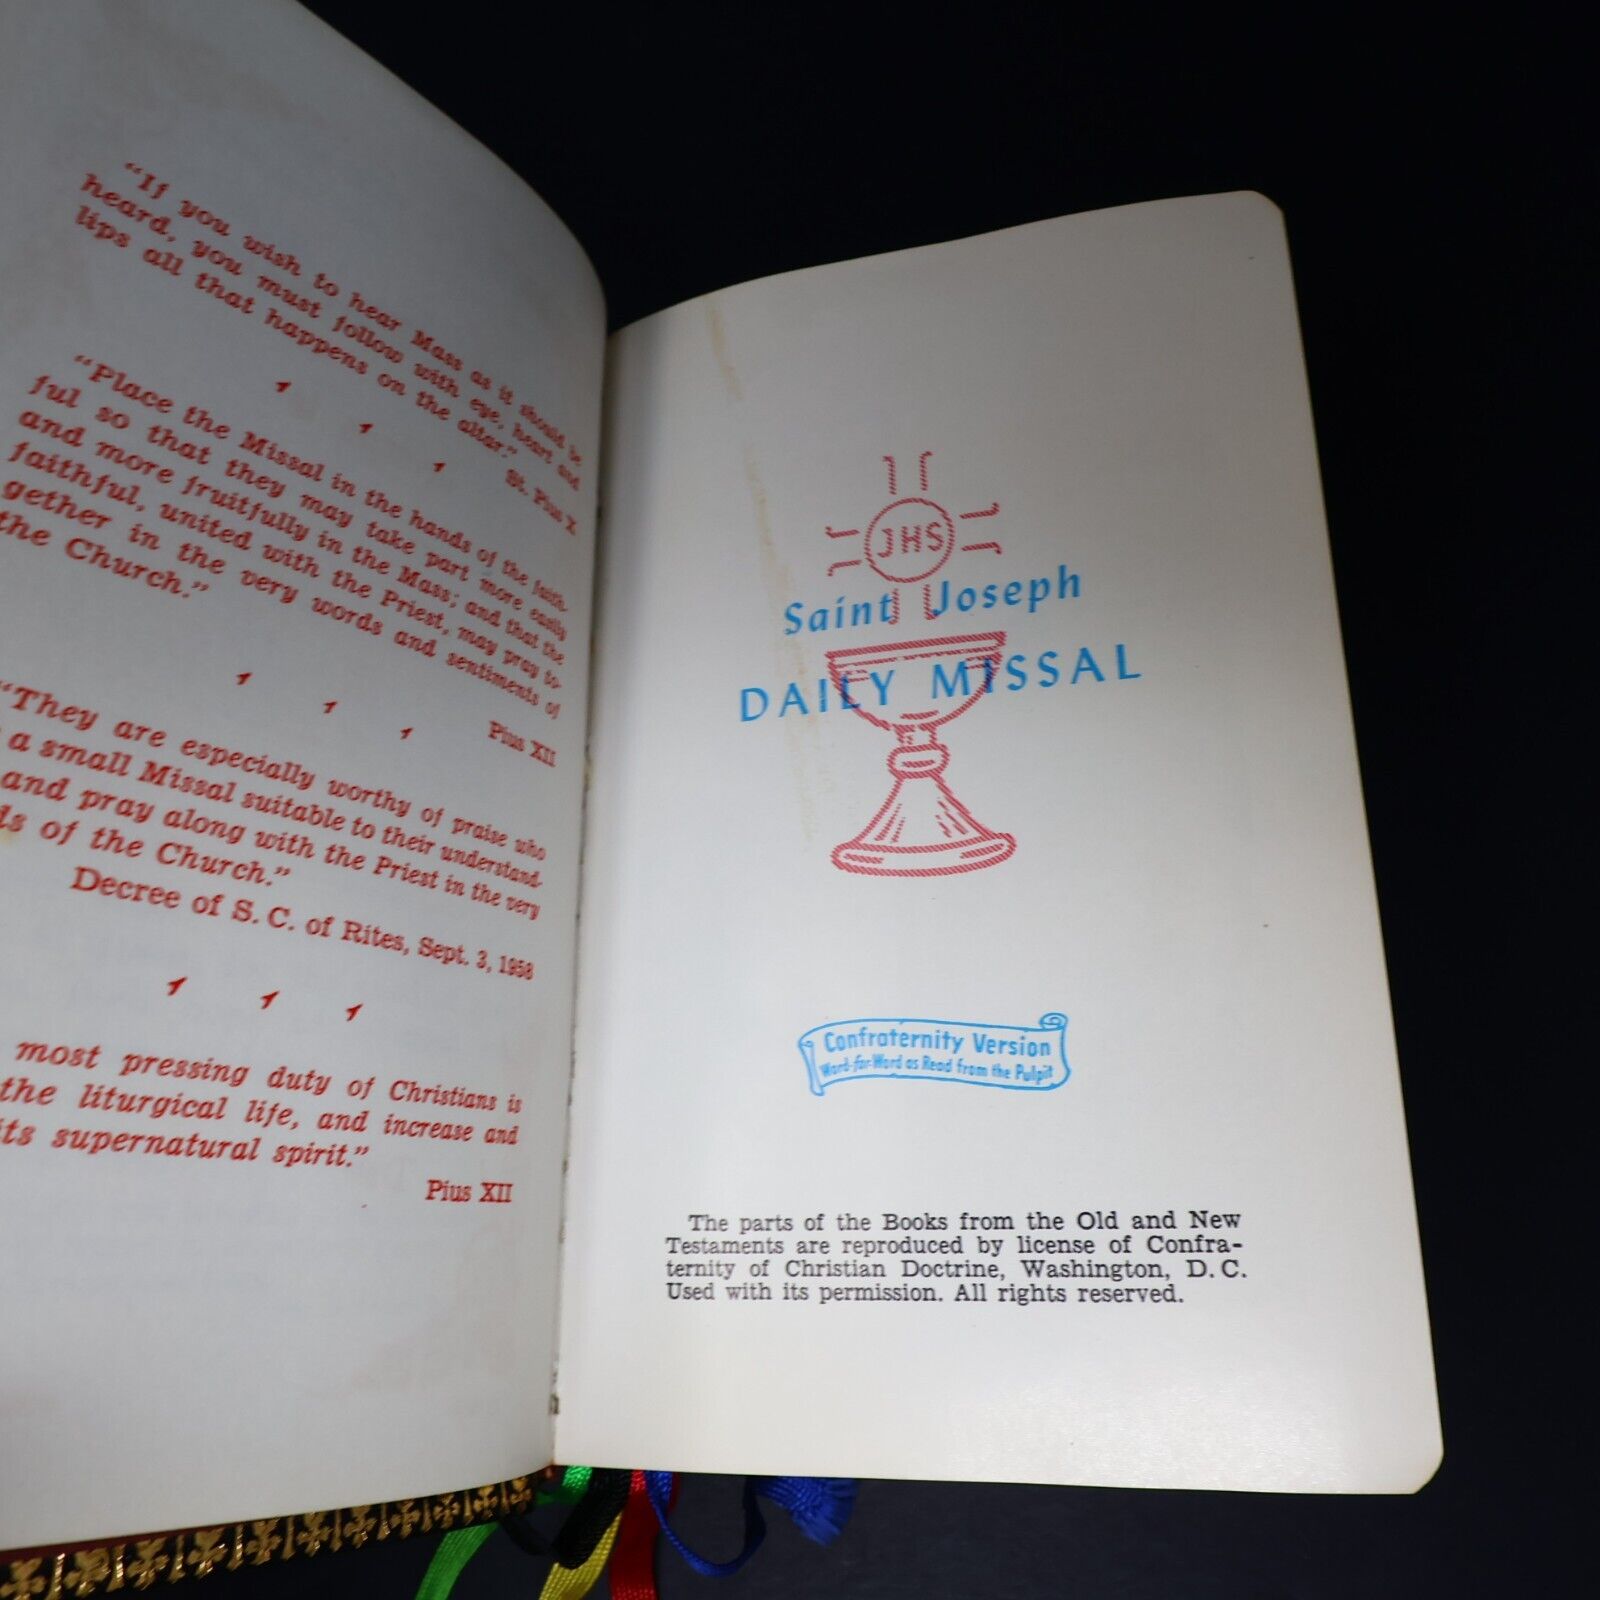 "If you wish to hear Mass as it should be
heard, you must follow with eye, heart and
lips all that happens on the altar."
St. Pius X
"Place the Missal in the hands of the faith-
ful so that they may take part more easily
and more fruitfully in the Mass; and that the
faithful, united with the Priest, may pray to-
gether in the very words and sentiments of
the Church."
Pius XII
"They are especially worthy of praise who
a small Missal suitable to their understand-
and pray along with the Priest in the very
of the Church."
Decree of S. C. of Rites, Sept. 3, 1958
most pressing duty of Christians is
the liturgical life, and increase and
its supernatural spirit."
Pius XII
JHS
Saint Joseph
DAILY MISSAL
Confraternity Version
Word-for-Word as Read from the Pulpit
The parts of the Books from the Old and New
Testaments are reproduced by license of Confra-
ternity of Christian Doctrine, Washington, D. C.
Used with its permission. All rights reserved.